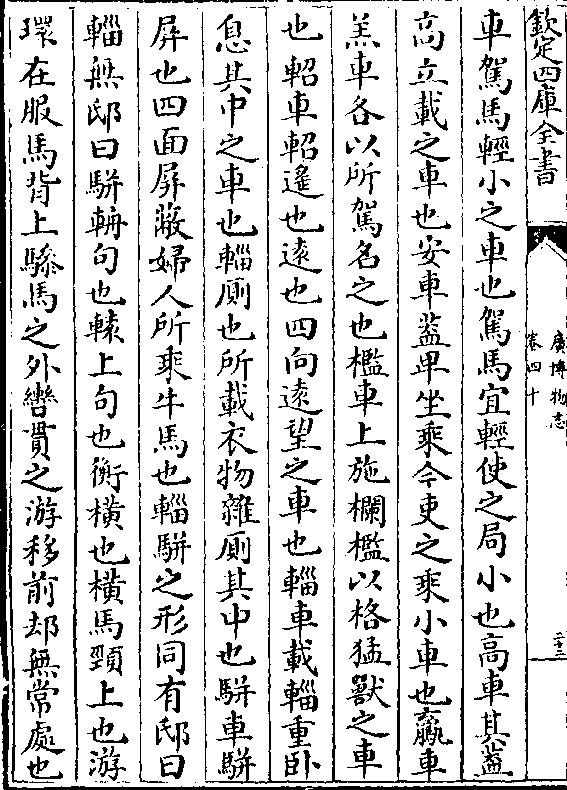 欽定四庫全書
廣博物志
卷四十
二十三
車駕馬輕小之車也駕馬宜輕使之局小也高車其葢
高立載之車也安車葢卑坐乘今吏之乘小車也羸車
羔車各以所駕名之也檻車上施欄檻以格猛獸之車
也軺車軺遙也遠也四向遠望之車也輜車載輜重卧
息其中之車也輜厠也所載衣物雜厠其中也駢車駢
屏也四面屏蔽婦人所乘牛馬也輜駢之形同有邸曰
輜無邸曰駢輈句也轅上句也衡橫也橫馬頸上也游
環在服馬背上驂馬之外轡貫之游移前却無常處也